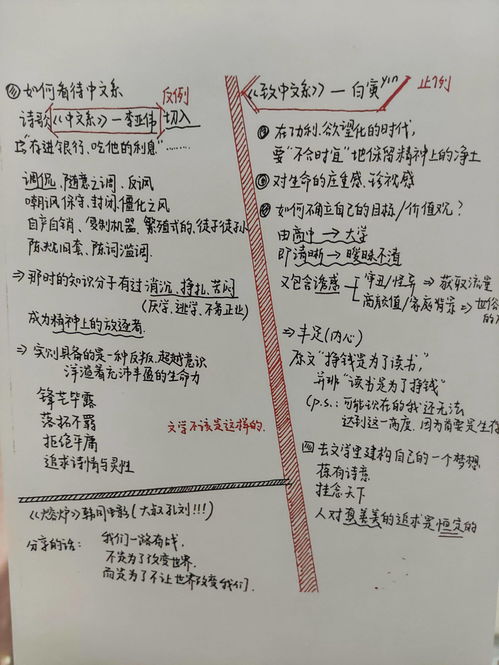 如何看待中文系
反例
诗歌《中文系》—李亚伟 切入
"在进银行、吃他的利息"……
调侃、随意之调、反讽
嘲讽保守、封闭、僵化之风
自产自销、复制机器、繁殖式的、徒子徒孙
陈规旧套、陈词滥调.
⇒ 那时的知识分子有过消沉、挣扎、苦闷
(厌学、逃学、不务正业)
成为精神上的放逐者.
⇒ 实则具备的是一种反叛、超越意识
洋溢着充沛丰盈的生命力
锋芒毕露
落拓不羁
拒绝平庸
追求诗情与灵性
文学不该是这样的.
《熔炉》韩国电影 (大叔孔刘!!!)
分享的话: 我们一路奋战,
不是为了改变世界.
而是为了不让世界改变我们.
《致中文系》—白寅yín
正例
在功利、欲望化的时代,
要"不合时宜"地保留精神上的净土
对生命的庄重感、珍视感
如何确立自己的目标/价值观?
由高中→大学
即清晰→暧昧不清
又包含诱惑
审丑/怪异 ⇒ 获取流量
商颜值/家庭背景 ⇒ 世俗
⇒ 丰足(内心)
原文"挣钱是为了读书",
并非"读书是为了挣钱"
(p.s.: 可能现在的我还无法
达到这一高度, 因为首要是生存
去文学里建构自己的一个梦想
拣有诗意
挂念天下
人对真善美的追求是恒定的